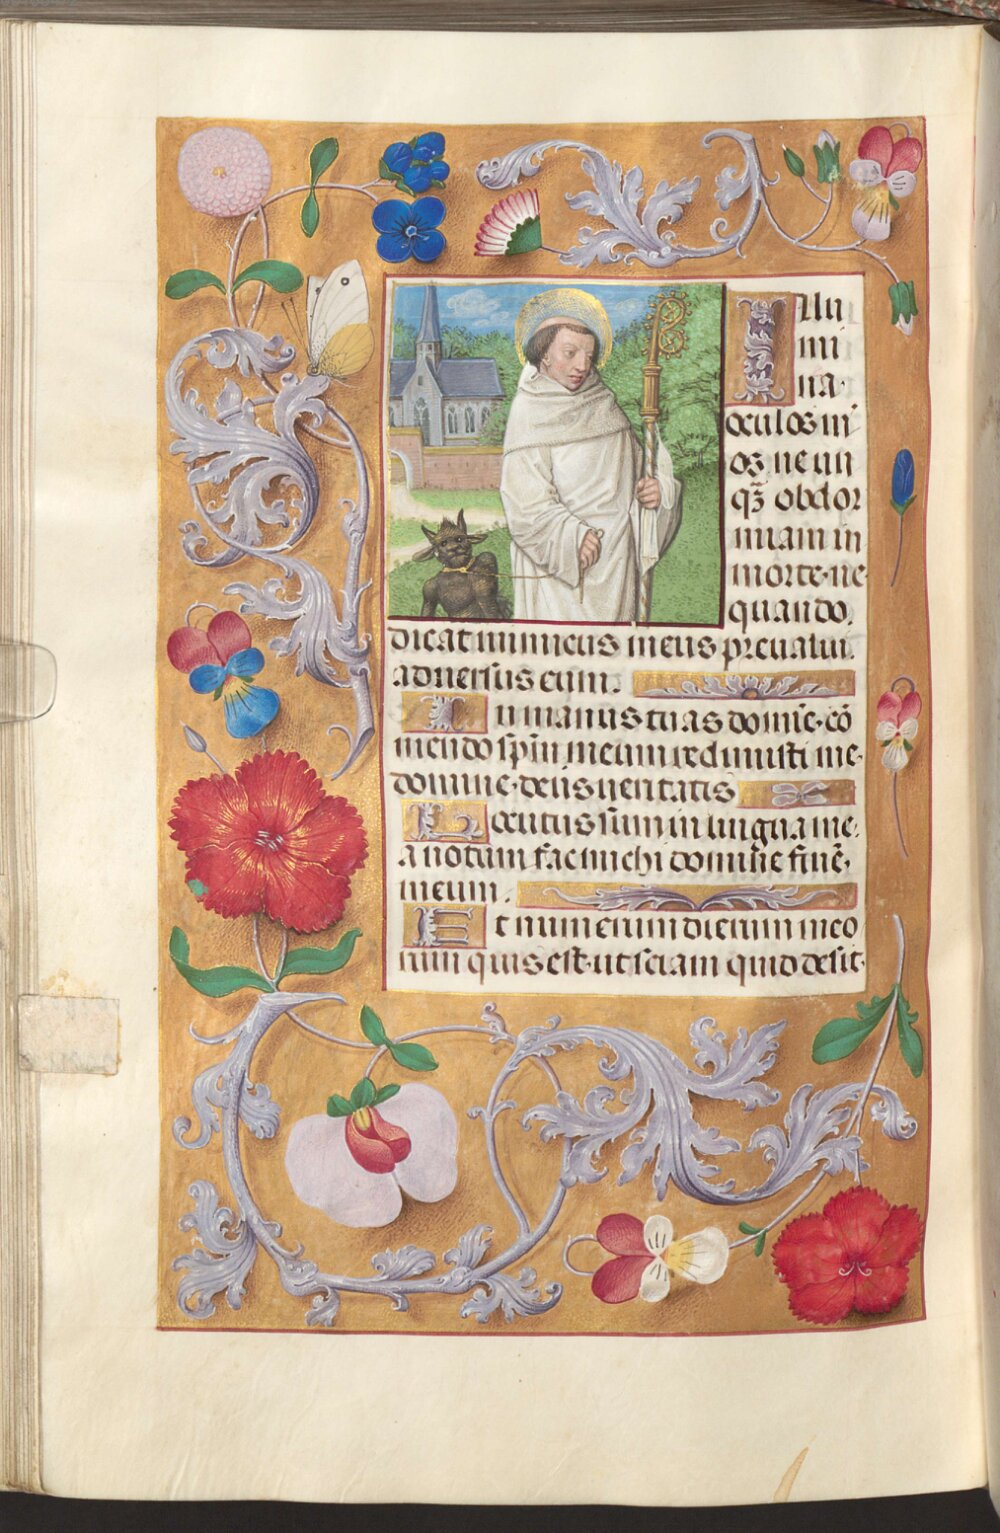 Illu
mi
na
oculos m
os ne un
qȝ obdor
miam in
morte ne
quando
dicat inimicus meus preualui
aduersus eum.
In manus tuas domīe cō
mendo spm̄ meum redimisti me
domine deus ueritatis
Locutus sum in lingua me
a notum fac michi domine finē
meum.
Et numerum dierum meo
rum quis est ut sciam quid desit